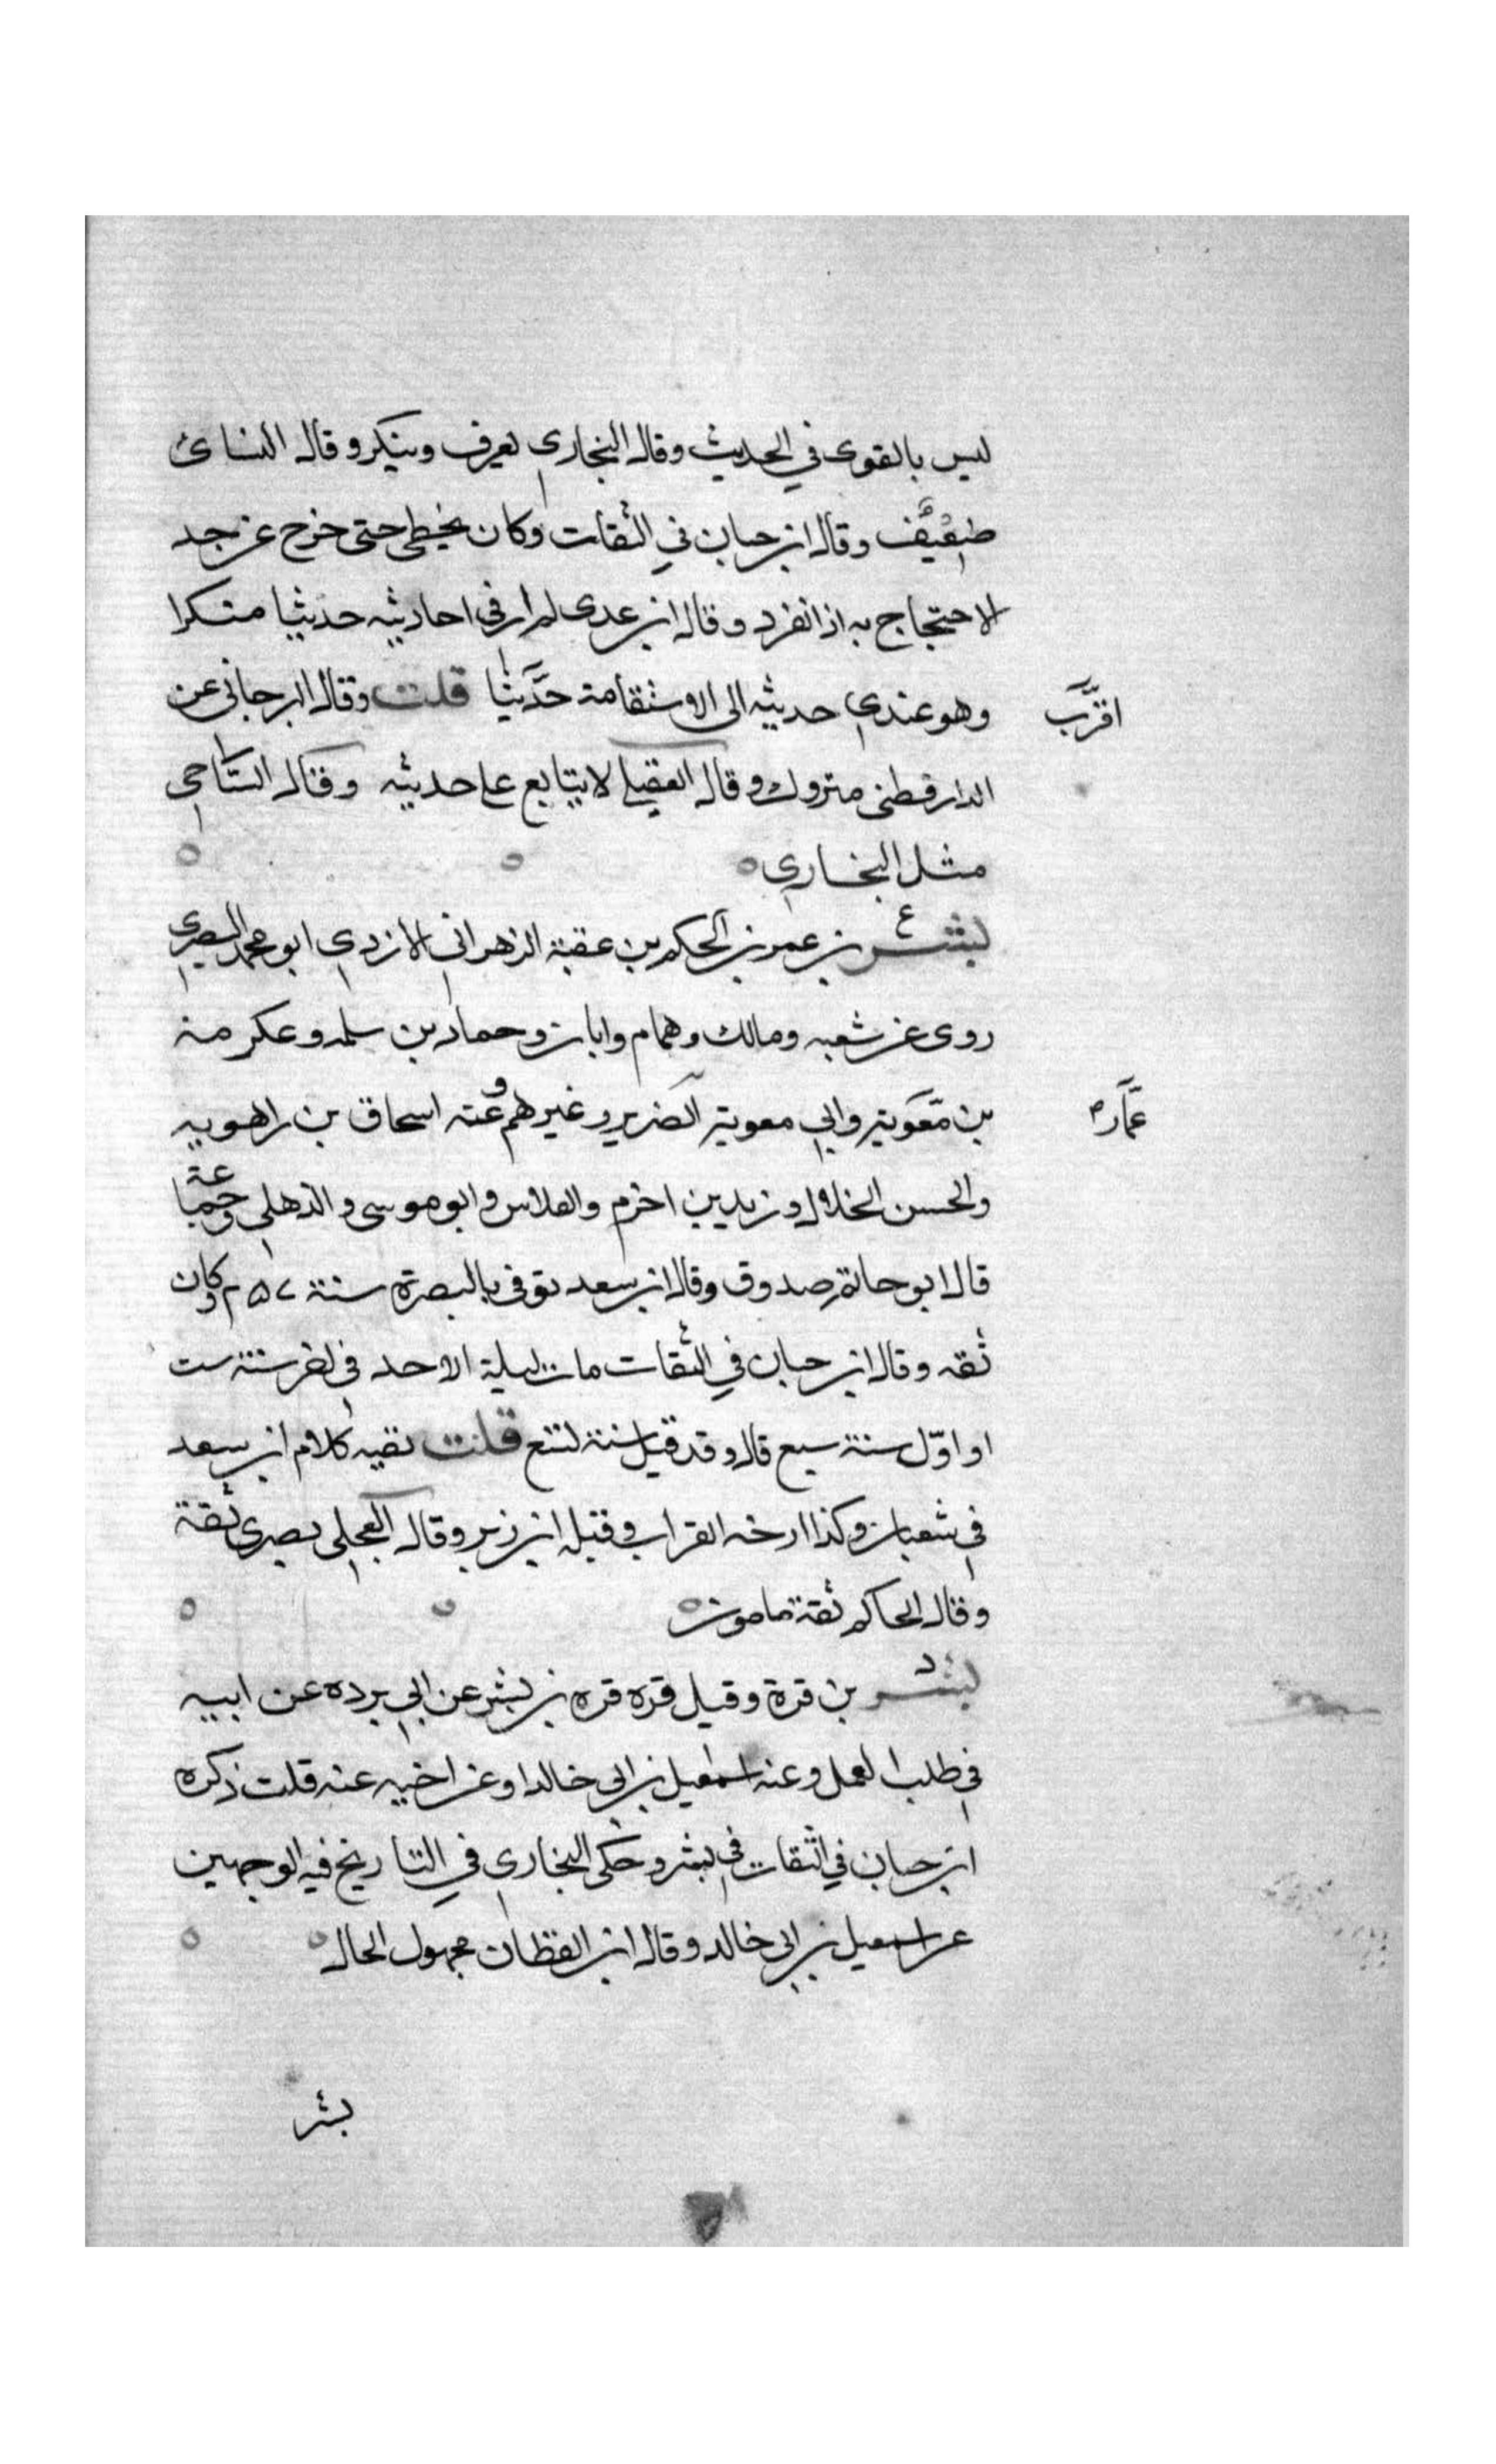 ليس بالقوى في الحديث وقال البخاري يعرف وينكر وقال النسائ
ضعيف وقال ابن حبان في الثقات وكان يخطى حتى خرج عن حد
الاحتجاج به اذا انفرد وقال ابن عدى لم ار في احاديثه حديثا منكرا
وهو عندي حديثه الى الاستقامة حدثنا قلت وقال البرجاني عن
اقرب
الدارقطنى متروك وقال العقيلي لا يتابع على حديثه وقال الساجى
مثل البخاري
بشر بن عمر بن الحكم بن عقبة الزهراني الازدي ابو محمد البصرى
ع
روى عن شعبه ومالك وهمام وابان وحماد بن سلمه وعكرمة
بن معوية وابي معوية الضرير وغيرهم وعنه اسحاق بن راهويه
عمار
والحسن الخلال وزيد بن اخزم والفلاس وابو موسى والذهلي وجماعة
قال ابو حاتم صدوق وقال ابن سعد توفى بالبصرة سنة وكان
ثقه وقال ابن حبان في الثقات مات ليلة الاحد في اخر سنة ست
او اول سنة سبع قال وقد قيل سنة تسع قلت بقيه كلام ابن سعد
في شعبان وكذا ارخه القراب وقبله ابن زبر وقال العجلى بصرى ثقة
وقال الحاكم ثقة مامون
بشر بن قرة وقيل قره قره بن بشر عن ابي برده عن ابيه
د
في طلب العمل وعنه اسمعيل بن ابي خالد او عن اخيه عنه قلت ذكره
ابن حبان في الثقات في بشر وحكى البخارى في التاريخ فيه الوجهين
عن اسمعيل بن ابي خالد وقال ابن القطان مجهول الحال
بشر